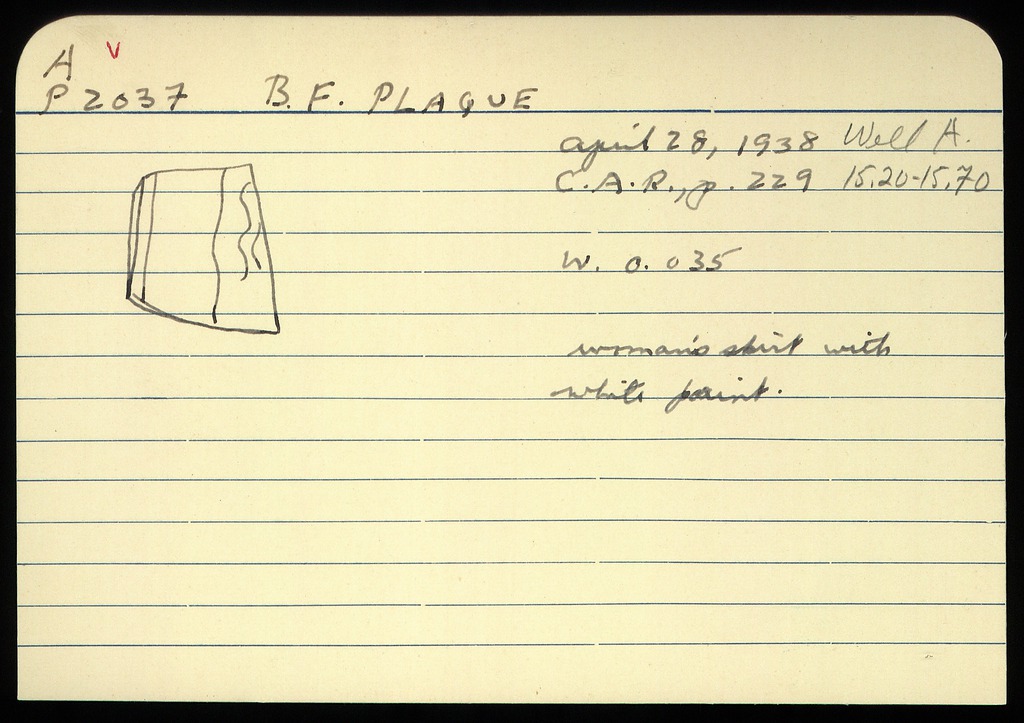 A v
P 2037 B. F. PLAQUE
april 28, 1938 Well A.
C.A.R., p. 229 15.20-15.70
W. 0.035
woman's skirt with
white paint.